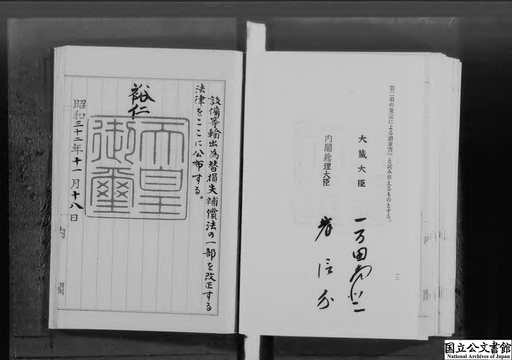 第二項の規定による請求書」と読み替えるものとする。
大蔵大臣 一万田尚登
内閣総理大臣 岸信介
三
設備等輸出為替損失補償法の一部を改正する
法律をここに公布する。
裕仁
天皇御璽
昭和三十二年十一月十八日
内閣
国立公文書館
National Archives of Japan